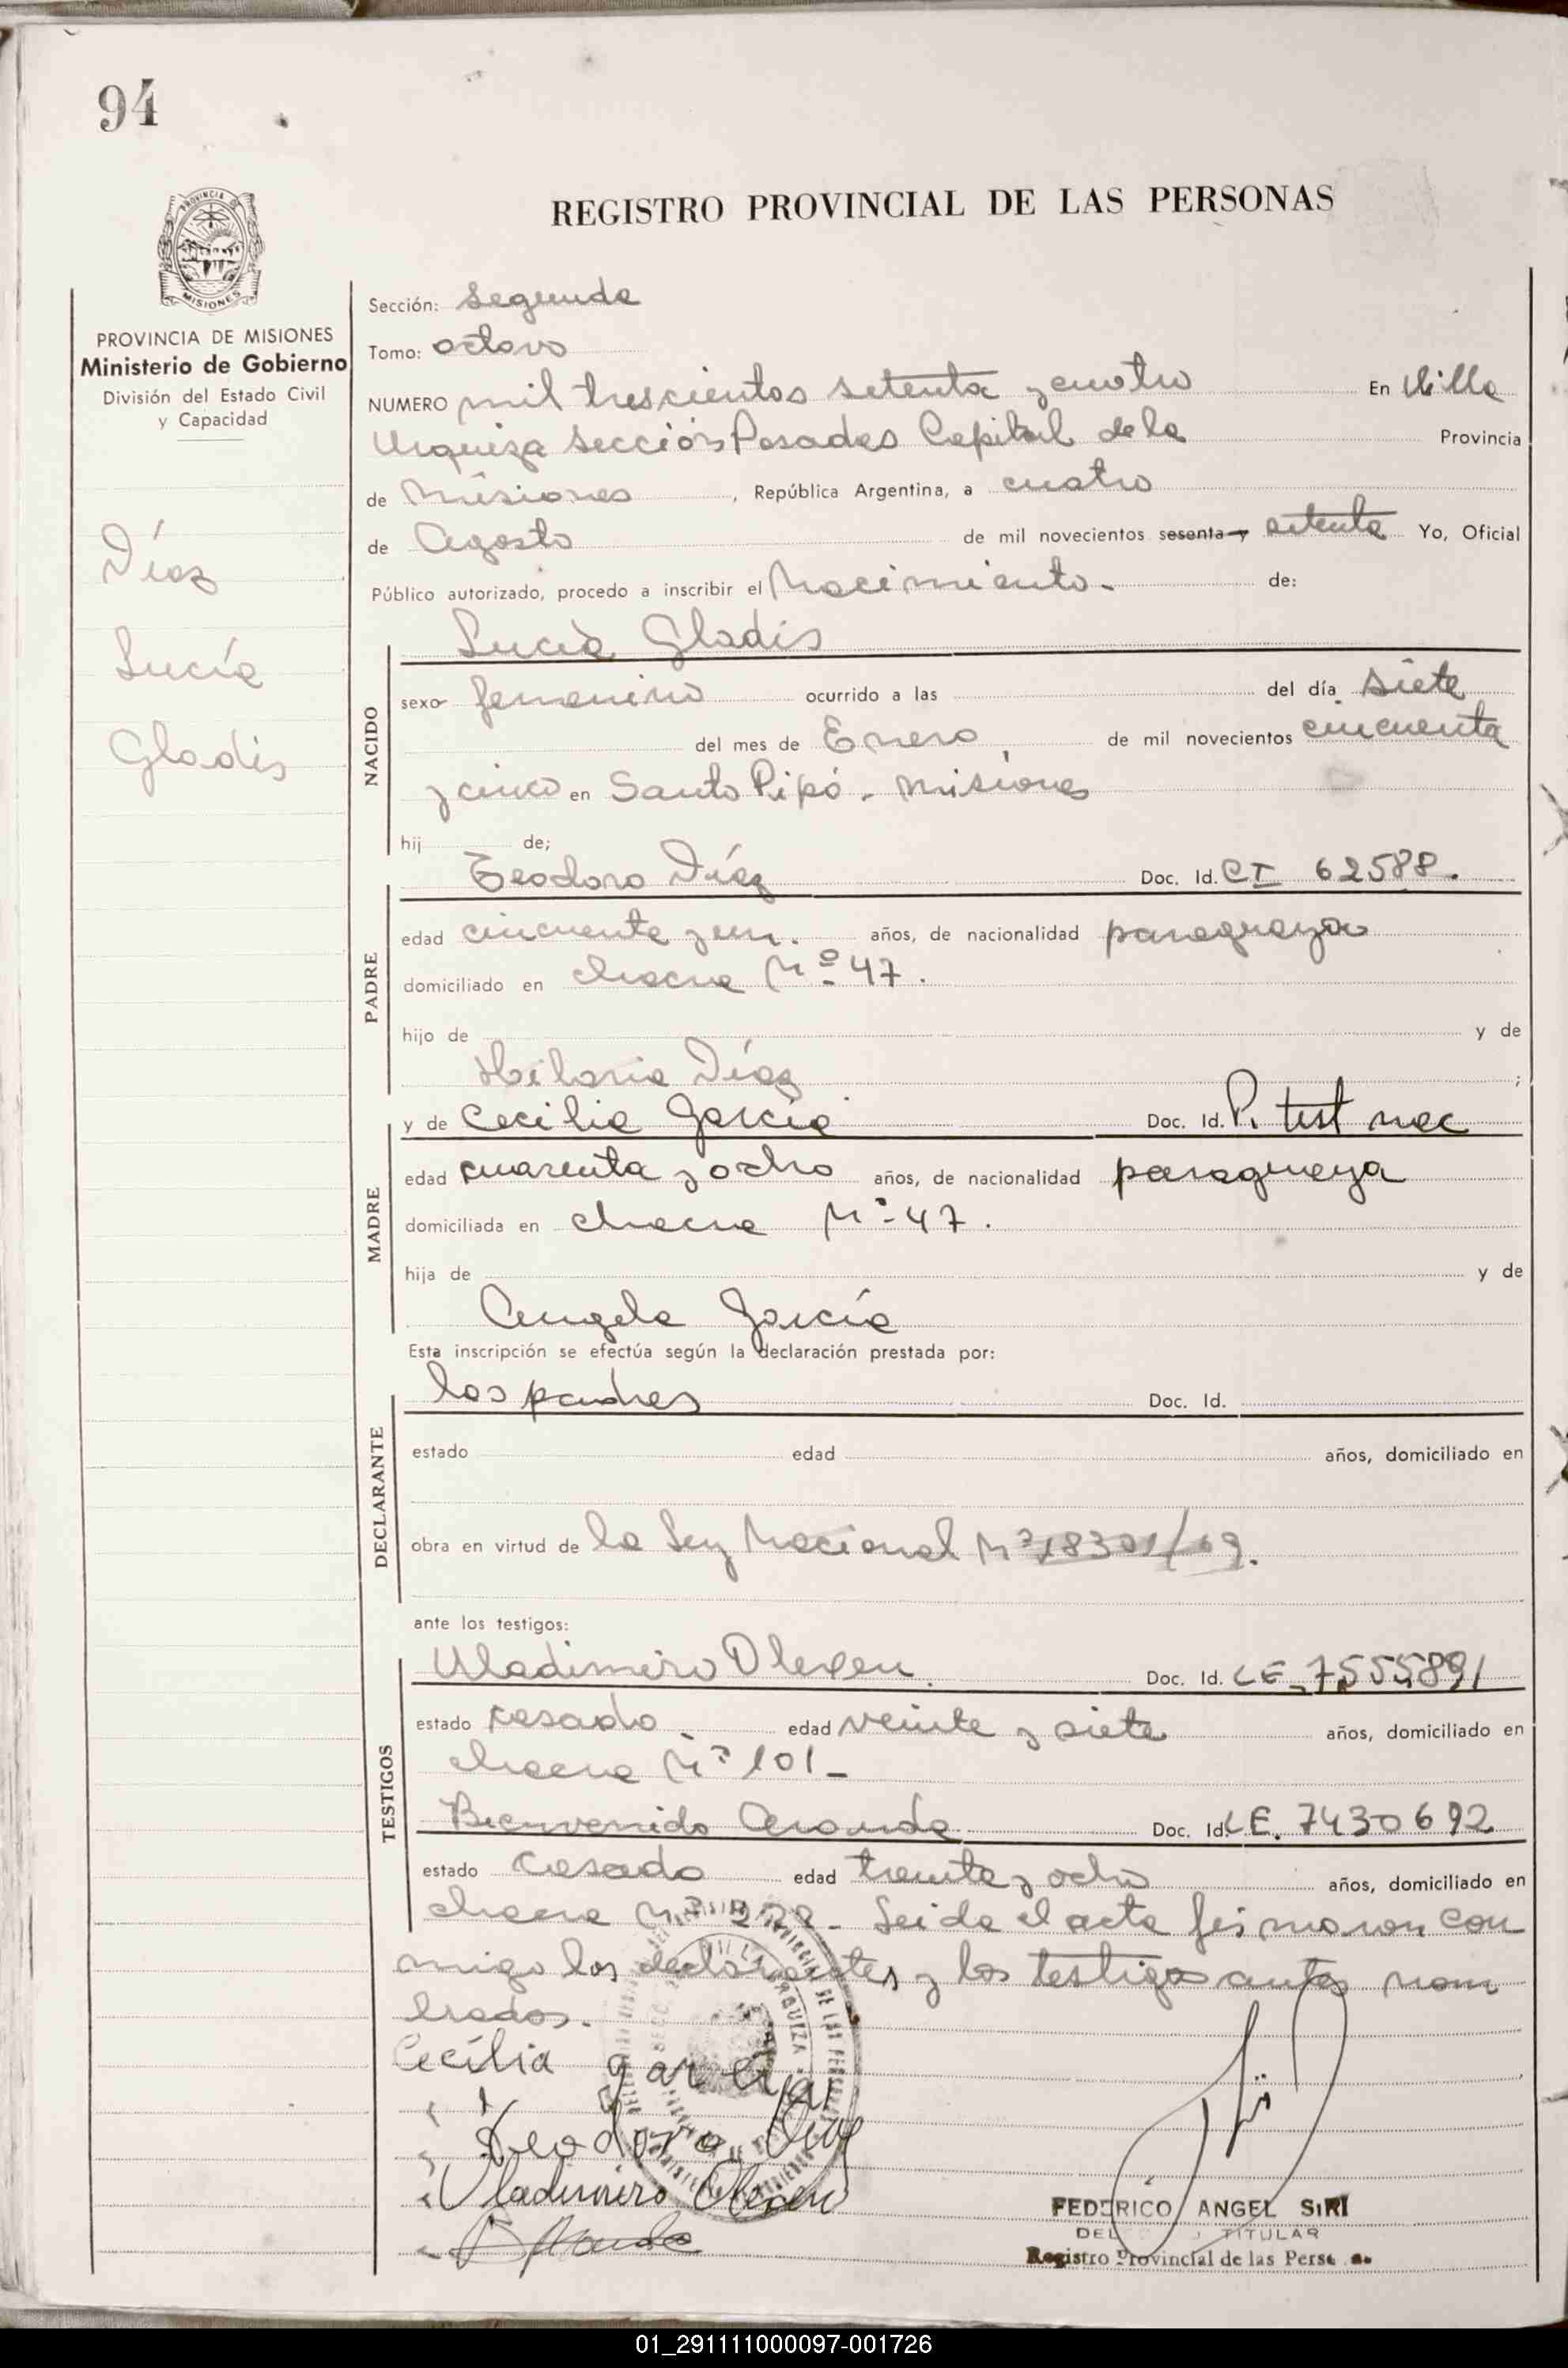 94
REGISTRO PROVINCIAL DE LAS PERSONAS
PROVINCIA DE
MISIONES
PROVINCIA DE MISIONES
Ministerio de Gobierno
División del Estado Civil
y Capacidad
Díaz
Lucía
Gladis
Sección: Segunda
Tomo: octavo
NUMERO mil trescientos setenta y cuatro En Villa
Urquiza Sección Posadas Capital de la Provincia
de Misiones, República Argentina, a cuatro
de Agosto de mil novecientos sesenta y setenta Yo, Oficial
Público autorizado, procedo a inscribir el Nacimiento. de:
NACIDO
Lucía Gladis
sexo femenino ocurrido a las del día siete
del mes de Enero, de mil novecientos cincuenta
y cinco en Santo Pipó. Misiones
hij de;
PADRE
Teodoro Díaz Doc. Id. CI 62588.
edad cincuenta y un. años, de nacionalidad paraguaya
domiciliado en chacra Nº 47.
hijo de y de
Hilaria Díaz ;
MADRE
y de Cecilia García Doc. Id. P. test nac
edad cuarenta y ocho años, de nacionalidad paraguaya
domiciliada en chacra Nº 47.
hija de y de
Angela García
Esta inscripción se efectúa según la declaración prestada por:
DECLARANTE
los padres Doc. Id.
estado edad años, domiciliado en
obra en virtud de la Ley Nacional Nº 18301/69.
ante los testigos:
TESTIGOS
Wladimiro Olexen. Doc. Id. LE 7555891
estado casado. edad veinte y siete años, domiciliado en
chacra Nº 101-
Bienvenido Aranda Doc. Id. LE. 7430692
estado casado edad treinta y ocho años, domiciliado en
chacra Nº - Leida el acta firmaron con
migo los declarantes y los testigos antes nom
brados.
Cecilia garcia
Teodoro Diaz
Vladimiro Olexen
B Aranda
FEDERICO ANGEL SIRI
TITULAR
Registro Provincial de las Perso
01_291111000097-001726